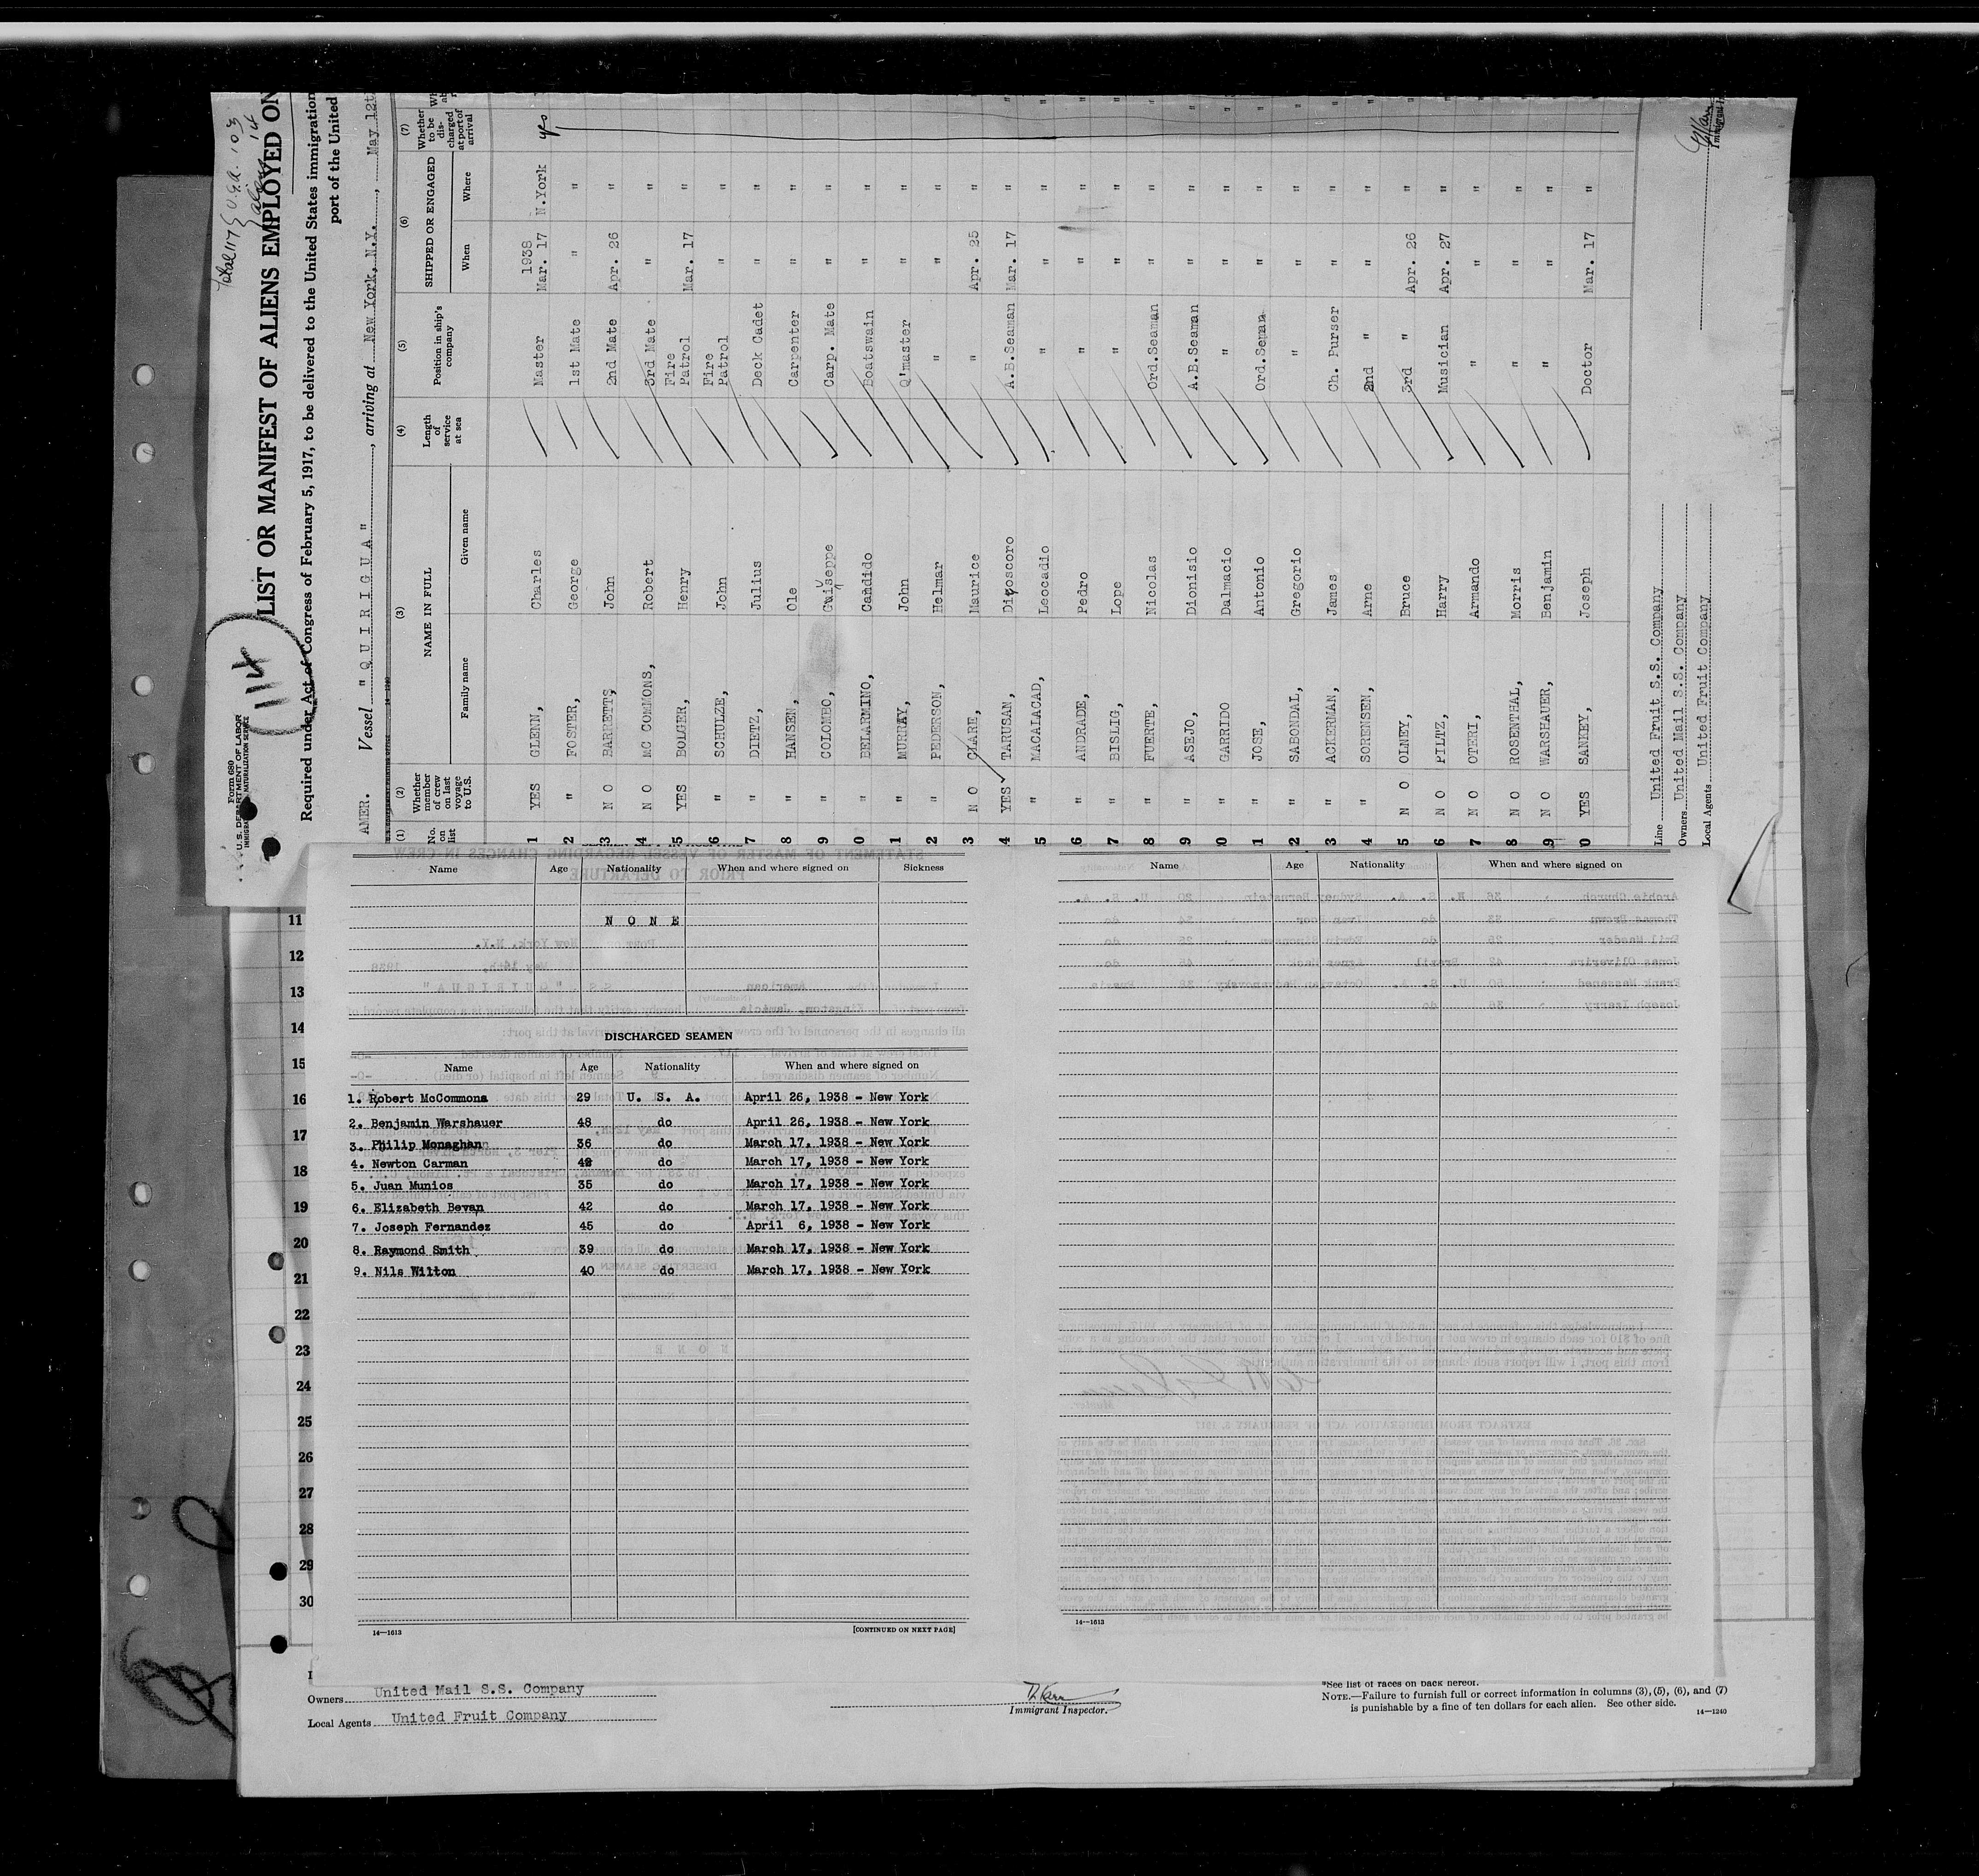 Total 117 { U.S.A. 103
aliens 14
LIST OR MANIFEST OF ALIENS EMPLOYED ON
Form 680
U.S. DEPARTMENT OF LABOR
114
Required under Act of Congress of February 5, 1917, to be delivered to the United States immigration
port of the United
AMER. Vessel " Q U I R I G U A " , arriving at New York, N.Y. , May 12th
(1) No. on list
(2) Whether member of crew on last voyage to U.S.
(3) NAME IN FULL
Family name Given name
(4) Length of service at sea
(5) Position in ship's company
(6) SHIPPED OR ENGAGED
When Where
(7) Whether to be discharged at port of arrival
1938
1 YES GLENN, Charles Master Mar. 17 N.York yes
2 " FOSTER, George 1st Mate " "
3 N O BARRETTS, John 2nd Mate Apr. 26 "
4 N O MC COMMONS, Robert 3rd Mate " "
5 YES BOLGER, Henry Fire Patrol Mar. 17 "
6 " SCHULZE, John Fire Patrol "
7 " DIETZ, Julius Deck Cadet " "
8 " HANSEN, Ole Carpenter " "
9 " COLOMBO, Guiseppe Carp. Mate " "
0 " BELARMINO, Candido Boatswain " "
1 " MURRAY, John Q'master " "
2 " PEDERSON, Helmar " " "
3 N O CLARE, Maurice " Apr. 25 "
4 YES TARUSAN, Dioscoro A.B.Seaman Mar. 17 "
5 " MACALACAD, Leocadio " " "
6 " ANDRADE, Pedro " " "
7 " BISLIG, Lope " " "
8 " FUERTE, Nicolas Ord.Seaman " "
9 " ASEJO, Dionisio A.B.Seaman " "
0 " GARRIDO Dalmacio " " "
1 " JOSE, Antonio Ord.Seman " "
2 " SABONDAL, Gregorio " " "
3 " ACKERMAN, James Ch. Purser " "
4 " SORENSEN, Arne 2nd " " "
5 N O OLNEY, Bruce 3rd " Apr. 26 "
6 N O PILTZ, Harry Musician Apr. 27 "
7 N O OTERI, Armando " " "
8 N O ROSENTHAL, Morris " " "
9 N O WARSHAUER, Benjamin " " "
0 YES SANKEY, Joseph Doctor Mar. 17 "
Line United Fruit S.S. Company
Owners United Mail S.S. Company
Local Agents United Fruit Company
11
12
13
14
15
16
17
18
19
20
21
22
23
24
25
26
27
28
29
30
Name Age Nationality When and where signed on Sickness
N O N E
DISCHARGED SEAMEN
Name Age Nationality When and where signed on
1. Robert McCommons 29 U. S. A. April 26, 1938 - New York
2. Benjamin Warshauer 48 do April 26, 1938 - New York
3. Philip Monaghan 36 do March 17, 1938 - New York
4. Newton Carman do March 17, 1938 - New York
5. Juan Munios 35 do March 17, 1938 - New York
6. Elizabeth Bevan 42 do March 17, 1938 - New York
7. Joseph Fernandez 45 do April 6, 1938 - New York
8. Raymond Smith 39 do March 17, 1938 - New York
9. Nils Wilton 40 do March 17, 1938 - New York
14—1613 [CONTINUED ON NEXT PAGE]
Name Age Nationality When and where signed on
14—1613
Owners United Mail S.S. Company
Local Agents United Fruit Company
Immigrant Inspector.
*See list of races on back hereof.
NOTE.—Failure to furnish full or correct information in columns (3), (5), (6), and (7)
is punishable by a fine of ten dollars for each alien. See other side.
14—1240